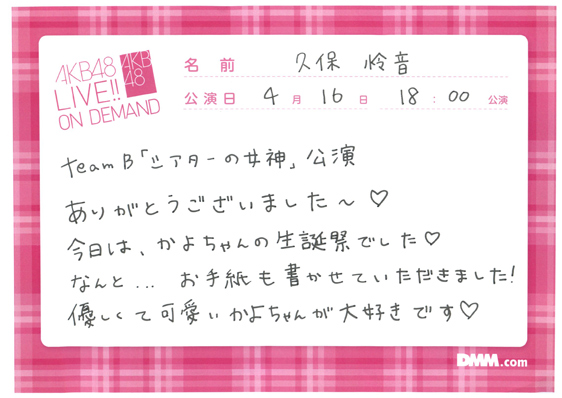 AKB48
LIVE!!
ON DEMAND
AKB
48
名前 久保 怜音
公演日 4月16日 18:00 公演
teamB「シアターの女神」公演
ありがとうございました〜♡
今日は、かよちゃんの生誕祭でした♡
なんと... お手紙も書かせていただきました!
優しくて可愛いかよちゃんが大好きです♡
DMM.com